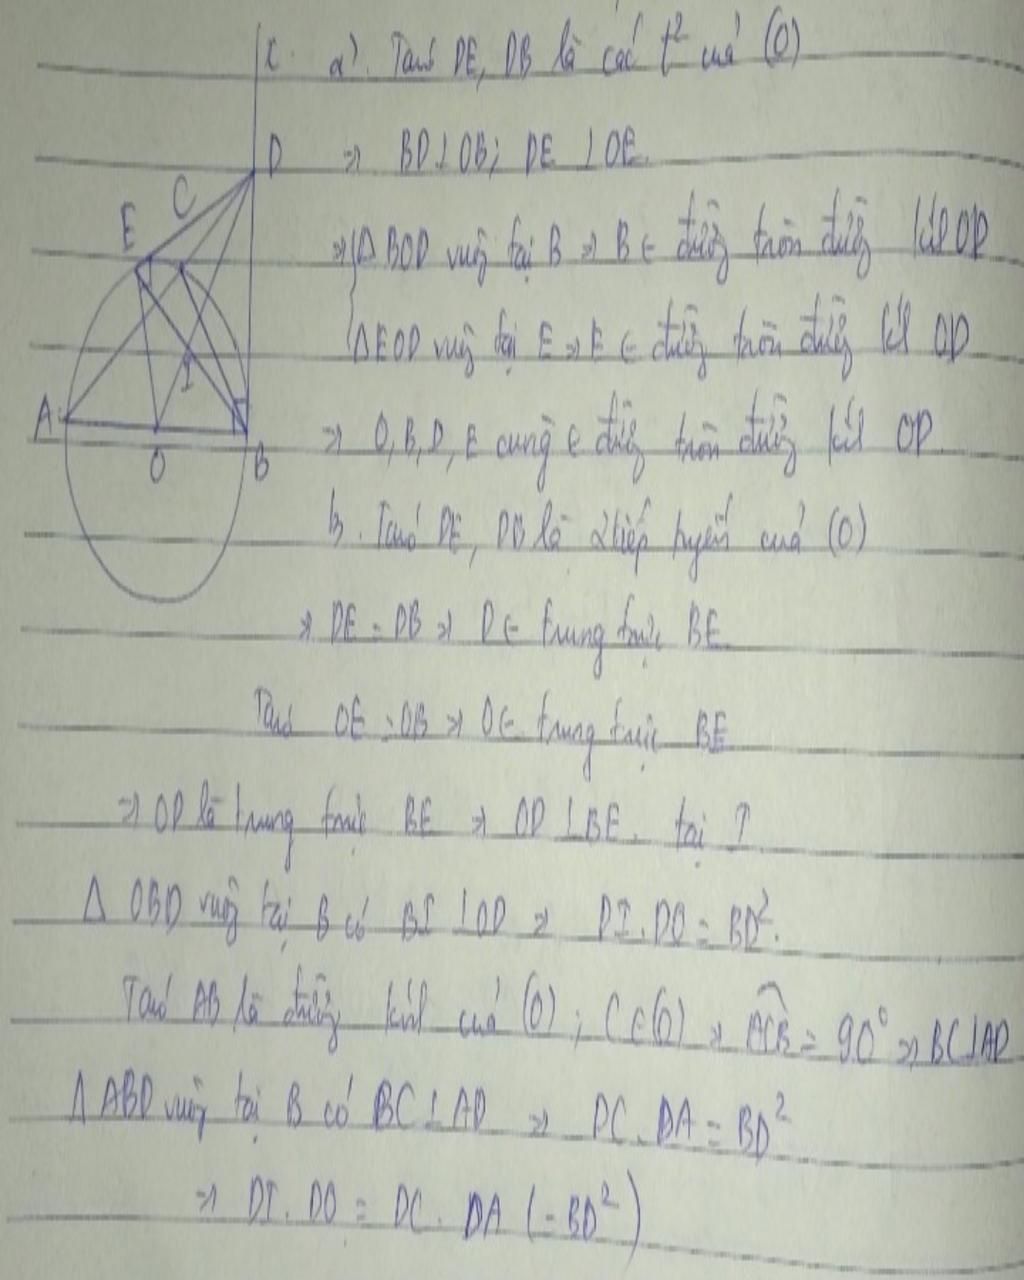 x
a). Ta có DE, DB là các t² của (O)
D
⇒ BD⊥OB; DE⊥OE
C
E
⇒ ΔBOD vuông tại B ⇒ B ∈ đường tròn đường kính OD
ΔEOD vuông tại E ⇒ E ∈ đường tròn đường kính OD
I
A
O
B
⇒ O, B, D, E cùng ∈ đường tròn đường kính OD
b. Ta có DE, DB là 2 tiếp tuyến của (O)
⇒ DE = DB ⇒ D ∈ trung trực BE
Ta có OE = OB ⇒ O ∈ trung trực BE
⇒ OD là trung trực BE ⇒ OD⊥BE tại I
Δ OBD vuông tại B có BI⊥OD ⇒ DI.DO = BD².
Ta có AB là đường kính của (O); C∈(O) ⇒ ACB = 90° ⇒ BC⊥AD
Δ ABD vuông tại B có BC⊥AD ⇒ DC.DA = BD²
⇒ DI.DO = DC.DA (=BD²)